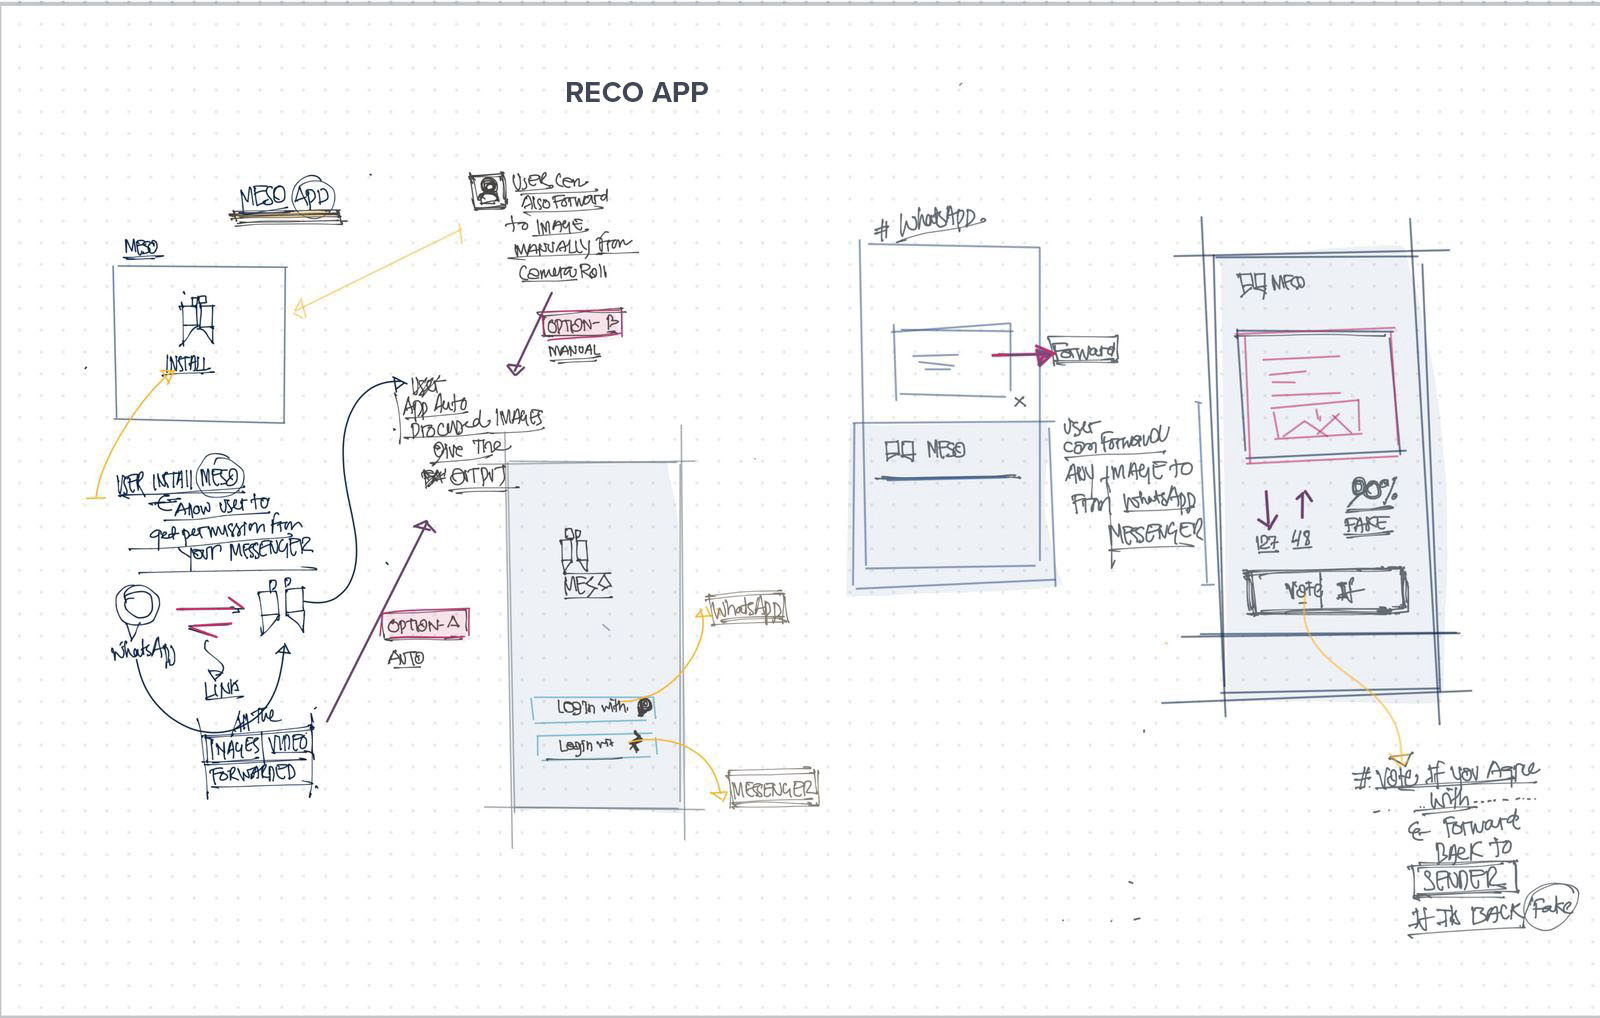 RECO APP
MESO APP
MESO
INSTALL
USER INSTALL MESO
Allow user to
get permission from
your MESSENGER
WhatsApp
LINK
All The
IMAGES VIDEO
FORWARDED
USER Can
Also Forward
to IMAGE
MANUALLY From
Camera Roll
OPTION-B
MANUAL
User
App Auto
IMAGES
Give The
OUTPUT
OPTION-A
AUTO
MESO
Login with
Login
WhatsApp
MESSENGER
# WhatsApp.
Forward
x
MESO
User
can forward
ANY IMAGE to
From WhatsApp
MESSENGER
MESO
127 48
90%
FAKE
Vote If
# Vote, If you Agree
with
& Forward
BACK to
SENDER
If Its BACK Fake